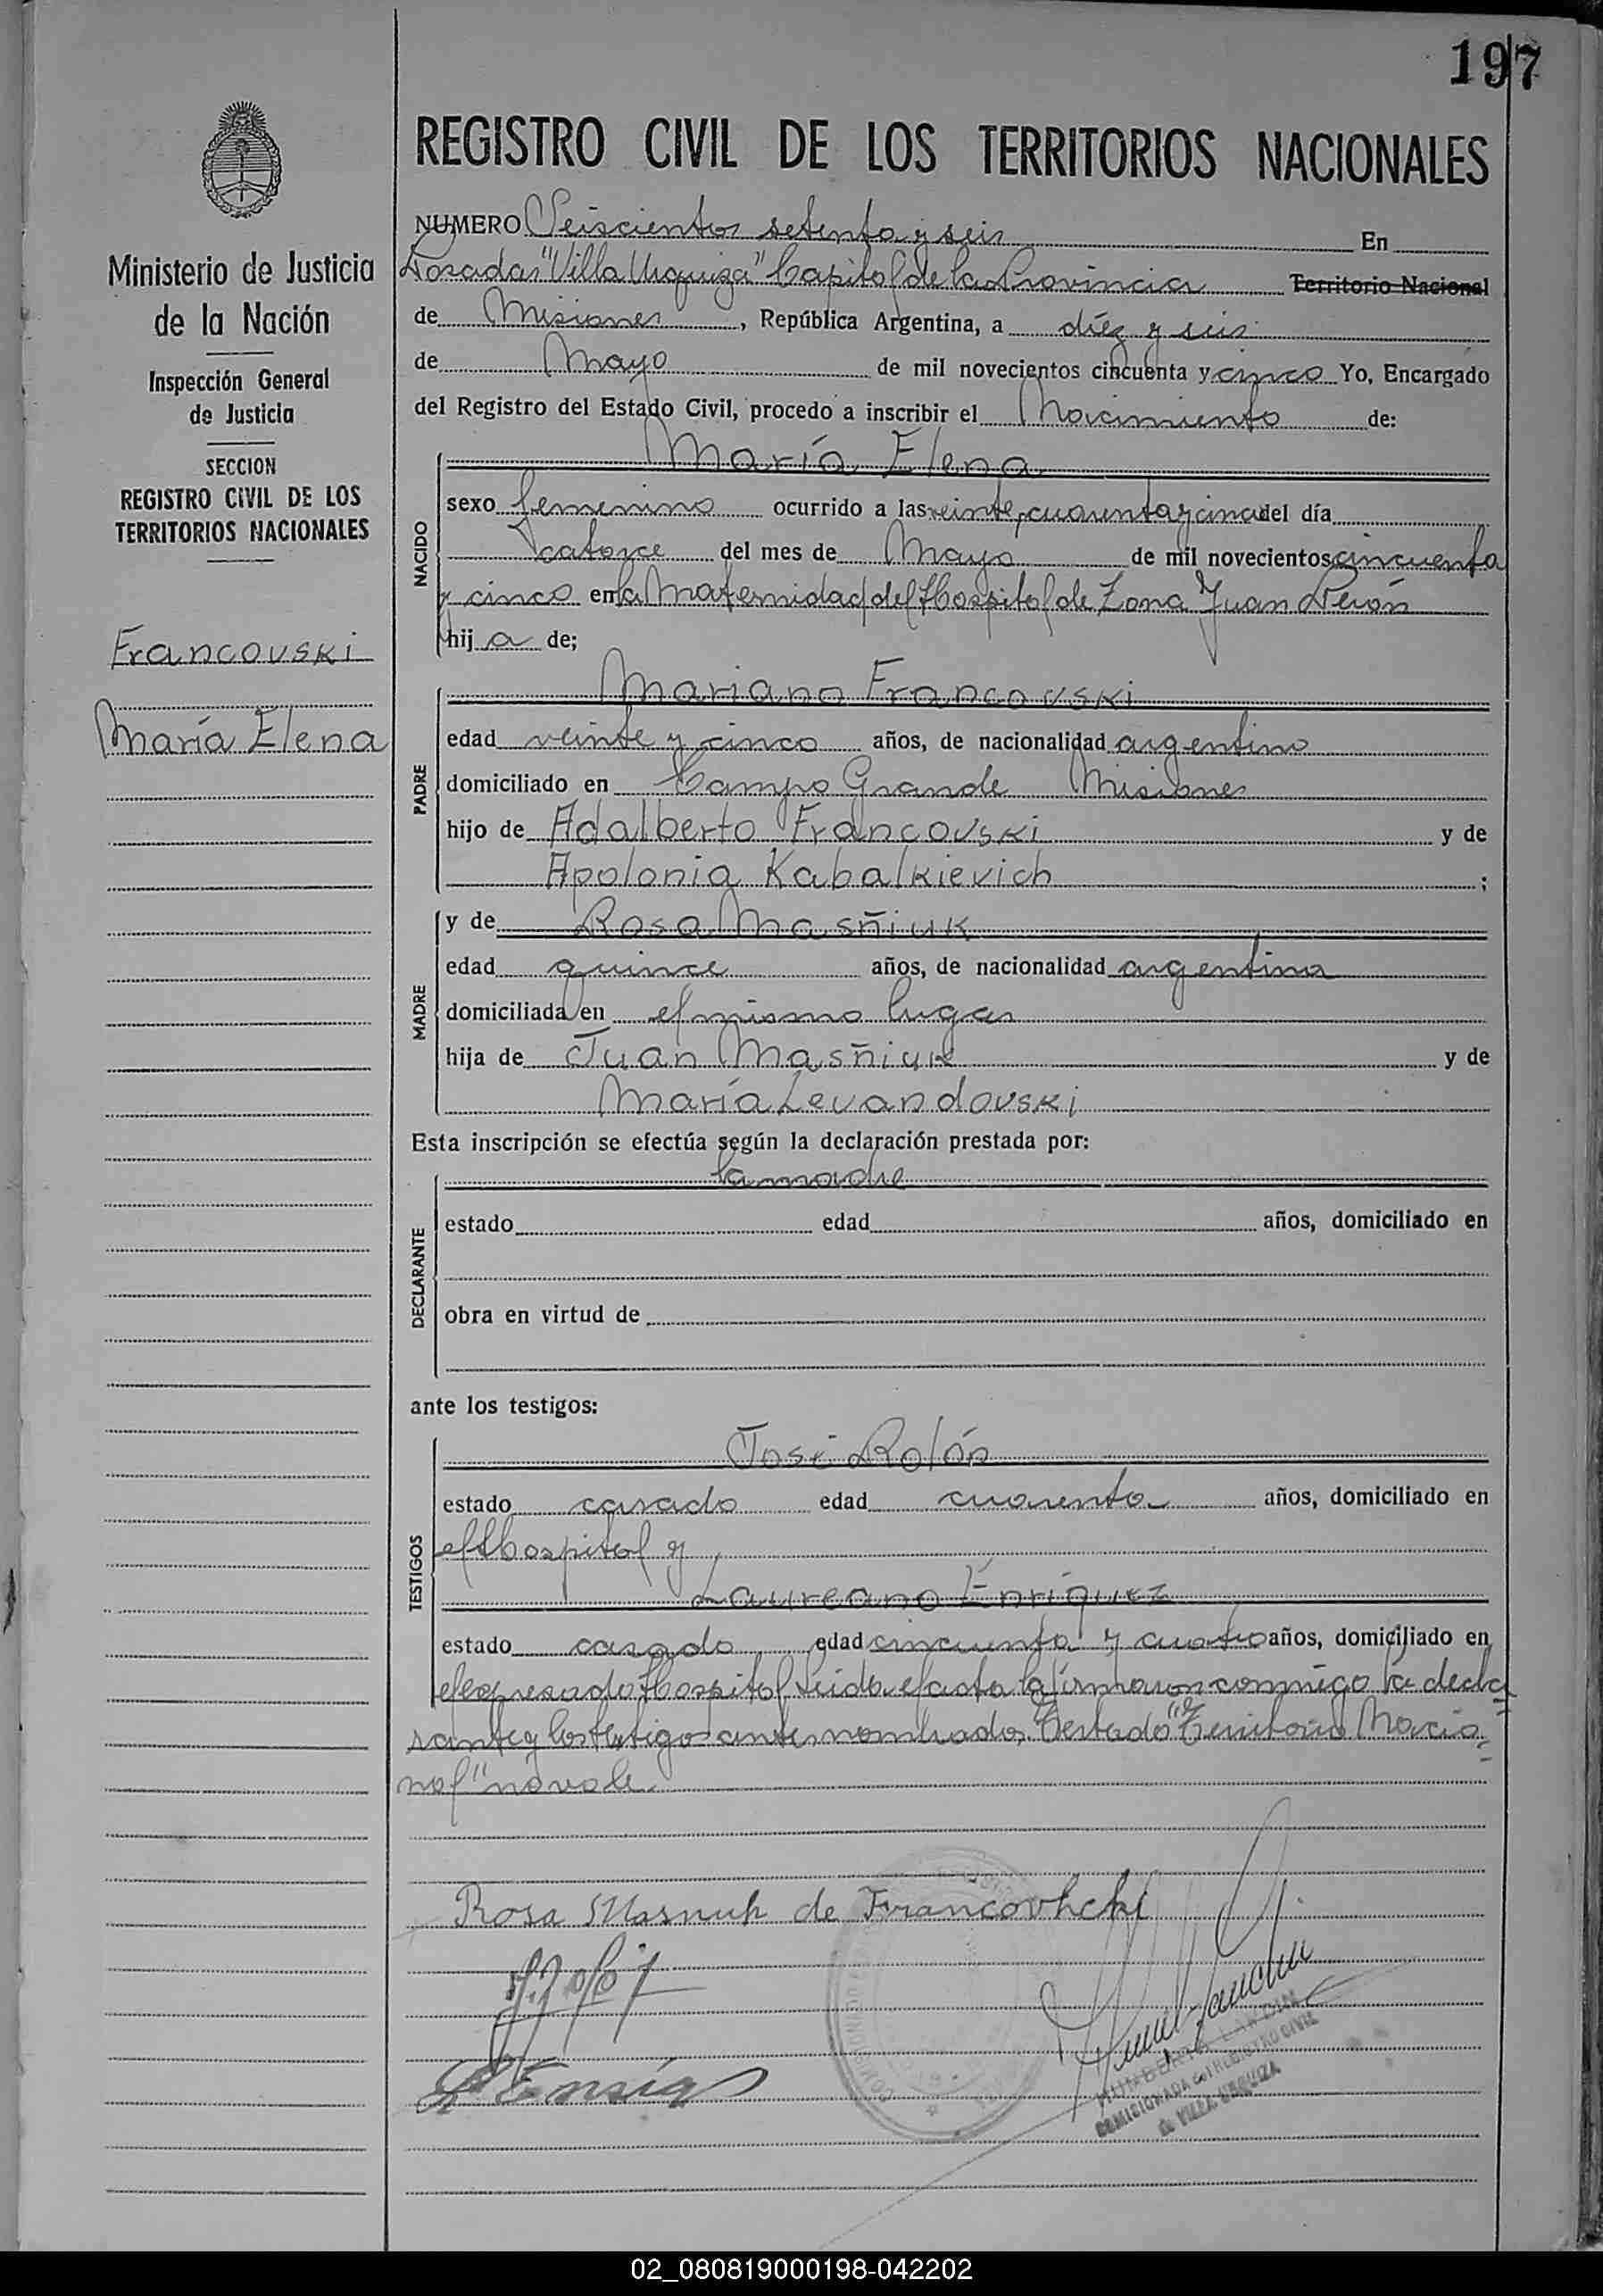 197
Ministerio de Justicia
de la Nación
Inspección General
de Justicia
SECCION
REGISTRO CIVIL DE LOS
TERRITORIOS NACIONALES
Francovski
María Elena
REGISTRO CIVIL DE LOS TERRITORIOS NACIONALES
NUMERO Seiscientos setenta y seis En
Posadas "Villa Urquiza" Capital de la Provincia Territorio Nacional
de Misiones, República Argentina, a diéz y seis
de Mayo de mil novecientos cincuenta y cinco Yo, Encargado
del Registro del Estado Civil, procedo a inscribir el Nacimiento de:
María Elena
sexo femenino ocurrido a las veinte, cuarenta y cinco del día
NACIDO
catorce del mes de Mayo de mil novecientos cincuenta
y cinco en la Maternidad del Hospital de Zona Juan Perón
hija de;
Mariano Francovski
edad veinte y cinco años, de nacionalidad argentino
PADRE
domiciliado en Campo Grande Misiones
hijo de Adalberto Francovski y de
Apolonia Kabalkievich;
y de Rosa Masñiuk
edad quince años, de nacionalidad argentina
MADRE
domiciliada en el mismo lugar
hija de Juan Masñiuk y de
María Levandovski
Esta inscripción se efectúa según la declaración prestada por:
la madre
estado edad años, domiciliado en
DECLARANTE
obra en virtud de
ante los testigos:
José Rolón
estado casado edad cuarenta años, domiciliado en
el Hospital y
TESTIGOS
Laureano Enriquez
estado casado edad cincuenta y cuatro años, domiciliado en
el expresado Hospital Leida el acta la firmaron conmigo la decla
rante y los testigos antes nombrados. Testado "Territorio Nacio
nal" no vale.
Rosa Masnuk de Francovhcki
COMISIONADA del REGISTRO CIVIL
de VILLA URQUIZA
02_080819000198-042202